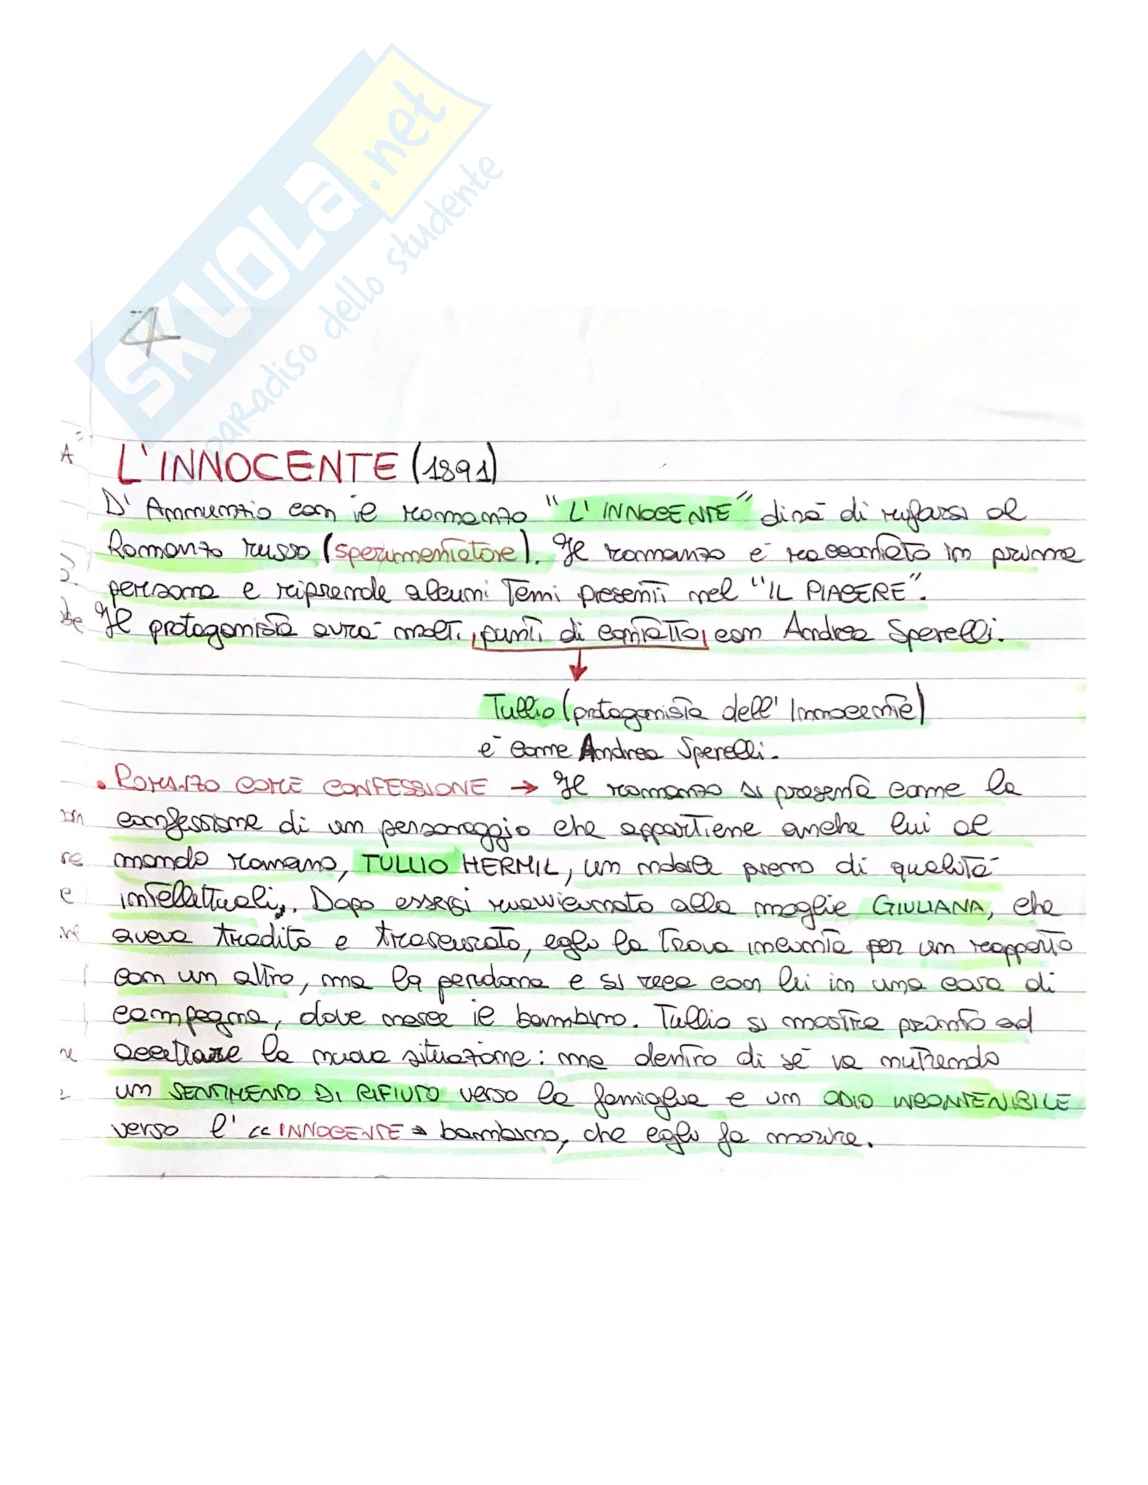 SKUOLA.net
paradiso dello studente
4
A
L'INNOCENTE (1891)
D'Annunzio con il romanzo "L'INNOCENTE" dirà di rifarsi al
Romanzo russo (sperimentatore). Il romanzo è raccontato in prima
persona e riprende alcuni Temi presenti nel "IL PIACERE".
Il protagonista avrà molti punti di contatto con Andrea Sperelli.
Tullio (protagonista dell'Innocente)
è come Andrea Sperelli.
• ROMANZO COME CONFESSIONE → Il romanzo si presenta come la
confessione di un personaggio che appartiene anche lui al
mondo romano, TULLIO HERMIL, un pieno di qualità
intellettuali,. Dopo essersi riavvicinato alla moglie GIULIANA, che
aveva tradito e trascurato, egli la trova incinta per un rapporto
con un altro, ma la perdona e si reca con lei in una casa di
campagna, dove nasce il bambino. Tullio si mostra pronto ad
accettare la nuova situazione: ma dentro di sé va nutrendo
un SENTIMENTO DI RIFIUTO verso la famiglia e un ODIO INCONTENIBILE
verso l'"INNOCENTE" bambino, che egli fa morire.